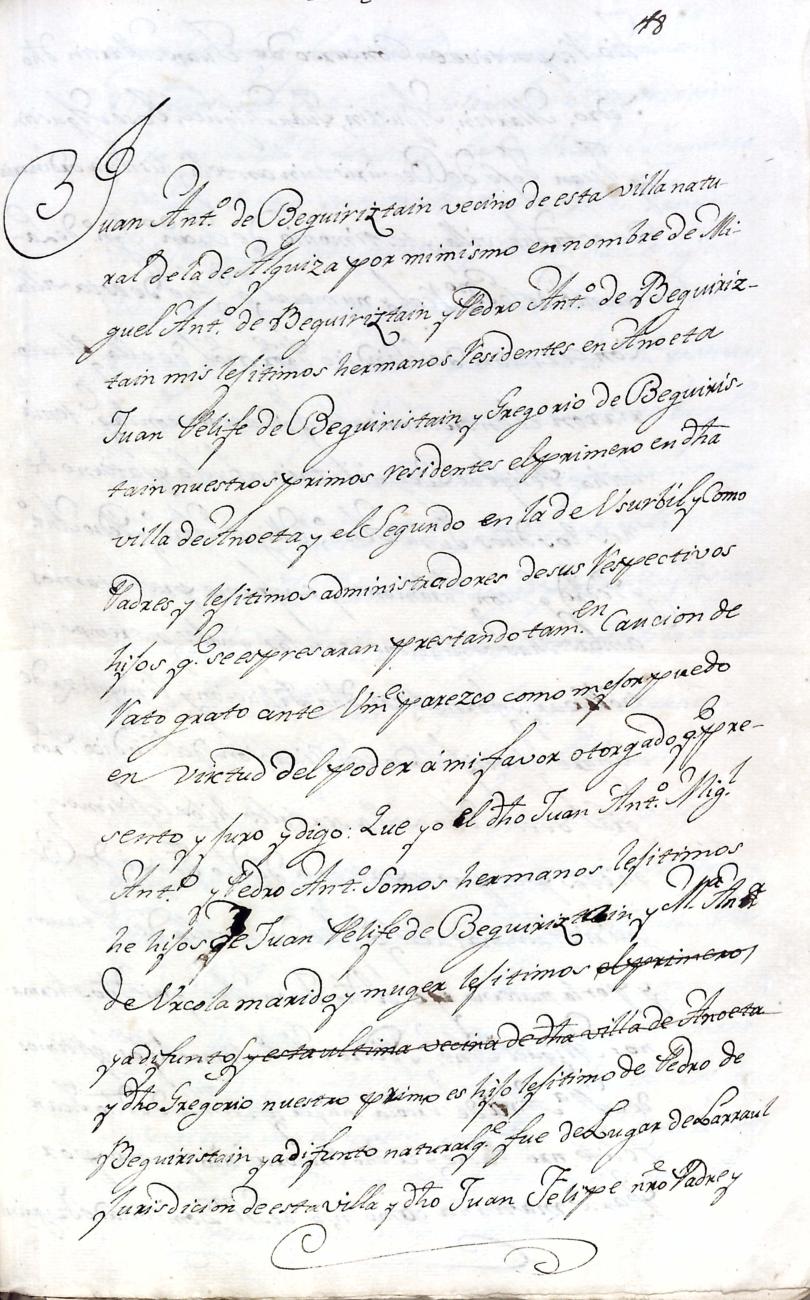 48
Juan Ant.º de Beguiriztain vecino de esta villa natu-
ral de la de Alquiza por mi mismo en nombre de Mi-
guel Ant.º de Beguiriztain y Pedro Ant.º de Beguiriz-
tain mis lejitimos hermanos Residentes en Anoeta
Juan Phelife de Beguiristain y Gregorio de Beguiris-
tain nuestros primos residentes el primero en dha
villa de Anoeta y el Segundo en la de Usurbil y Como
Padres y lejitimos administradores de sus Respectivos
hijos q.e se espresaran prestando tam.en Caucion de
Rato grato ante Vm.e parezco como mejor puedo
en virtud del poder á mi favor otorgado q.e pre-
sento y juro y digo: Que yo el dho Juan Ant.º Mig.l
Ant.º y Pedro Ant.º Somos hermanos lejitimos
he hijos de Juan Phelife de Beguiriztain y M.ª Ant.ª
de Urcola marido y muger lejitimos el primero
ya difuntos y esta ultima vecina de dha villa de Anoeta
y dho Gregorio nuestro primo es hijo lejitimo de Pedro de
Beguiristain ya difunto natural q.e fue de Lugar de Larraul
Jurisdicion de esta villa y dho Juan Felipe nro Padre y